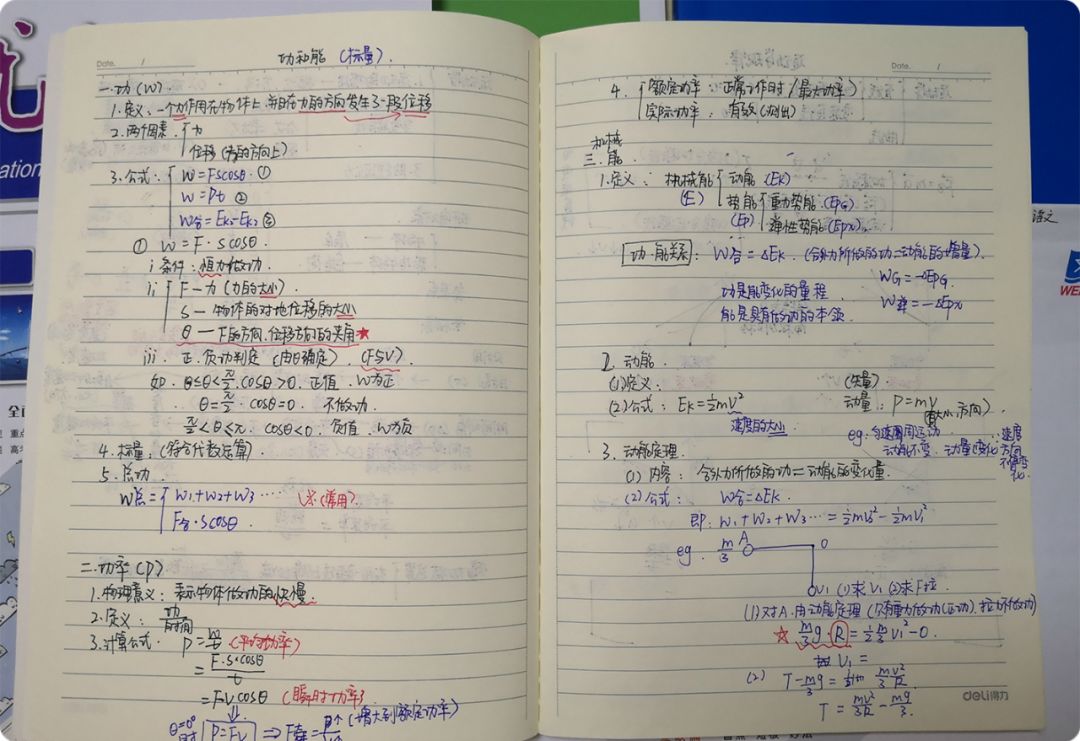 Date. /
功和能 (标量)
一.功(W)
1.定义:一个力作用在物体上,并且在力的方向发生了一段位移
2.两个因素. 力
位移(力的方向上)
3.公式: W=Fscosθ ①
W=Pt ②
W合=Ek2-Ek1 ③
① W=F·scosθ.
i 条件:恒力做功.
ii F—力(力的大小)
S—物体的对地位移的大小
θ—F的方向、位移方向的夹角★
iii 正.负功判定(由θ确定) (F与V)
如. 0≤θ<π/2. cosθ>0. 正值. W为正
θ=π/2. cosθ=0. 不做功.
π/2<θ≤π. cosθ<0. 负值. W为负
4.标量:(符合代数运算)
5.总功
W总= W1+W2+W3 ···· (常用)
F合·scosθ
二.功率(P)
1.物理意义:表示物体做功的快慢.
2.定义: 功/时间
3.计算公式. P=W/t (平均功率)
=F·s·cosθ/t
=FVcosθ (瞬时功率)
θ=0° 时 P=FV ⇒ (增大到额定功率)
Date. /
4. 额定功率:正常工作时/最大功率
实际功率:有效(输出)
机械
三.能
1.定义: 机械能 动能(Ek)
(E) 势能 重力势能(EpG)
(Ep) 弹性势能
功.能关系: W合=ΔEk.(合外力所做的功=动能的增量).
WG=-ΔEpG
功是能变化的量程
W弹=-ΔEp
能是具有做功的本领
2.动能.
(1)定义: (矢量)
(2)公式:Ek=½mV² 动量:P=mV
(大小.方向)
速度的大小
eg:匀速圆周运动
动能不变. 动量变化
速度方向
3.动能定理
(1)内容:合外力所做的功=动能的变化量.
(2)公式: W合=ΔEk.
即:W1+W2+W3···=½mV2²-½mV1²
eg. m/3 A O
V1 (1)求V1 (2)求F拉
(1)对A.由动能定理(只有重力做功(正功).拉力不做功)
★ m/3 g·R=½ m/3 V1²-0.
V1=
(2) T-mg/3= mV²/3R
T=mV²/3R-mg/3.
deli得力
ation
语文